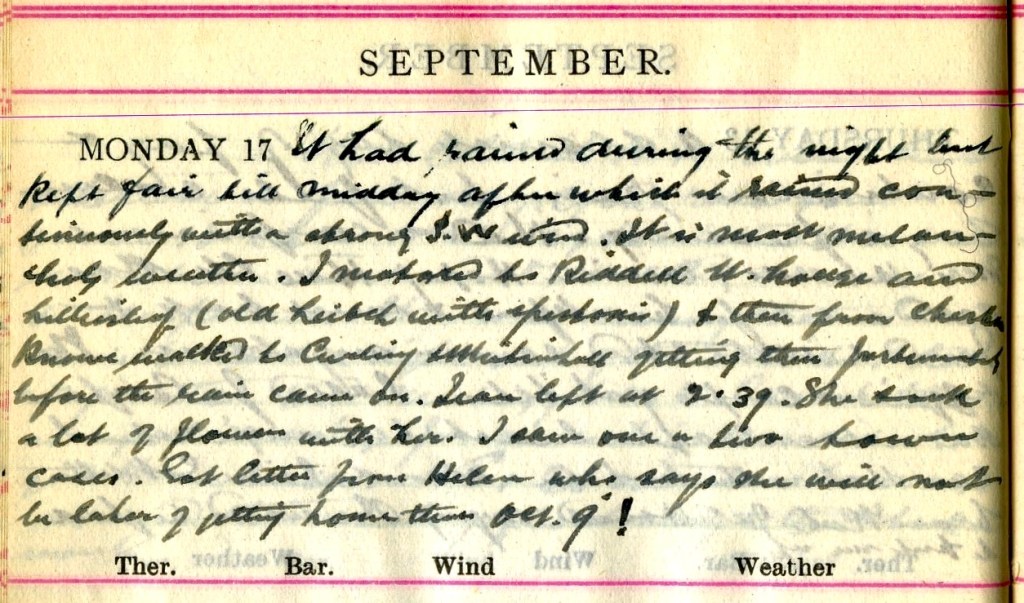 SEPTEMBER.
MONDAY 17 It had rained during the night but
kept fair till midday after which it rained con-
tinuously with a strong S.W wind. It is most melan-
choly weather. I motored to Riddell and
(old with epistaxis) & then from
Knowe walked to & getting there fortunately
before the rain came on. Jean left at 2.39. She took
a lot of flowers with her. I saw one or two town
cases. Got letter from Helen who says she will not
be later of getting home than Oct. 9!
Ther. Bar. Wind Weather